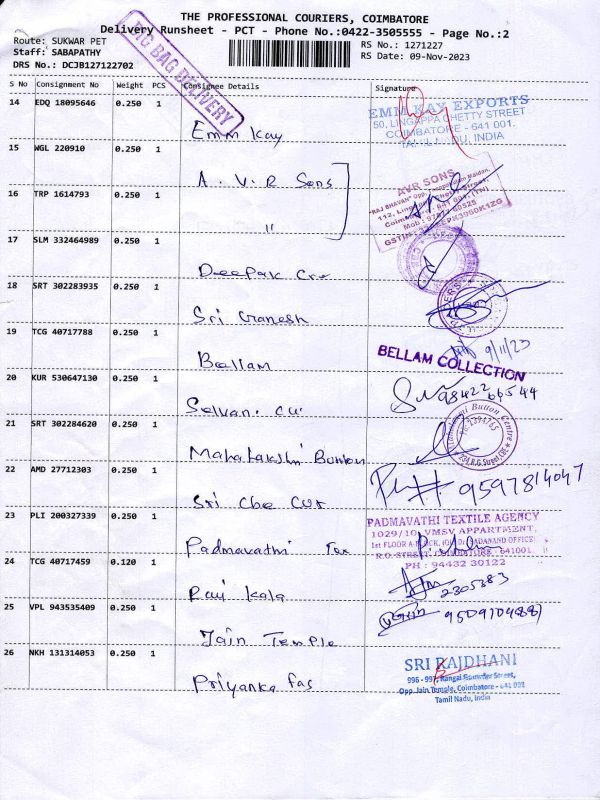 THE PROFESSIONAL COURIERS, COIMBATORE
Delivery Runsheet - PCT - Phone No.:0422-3505555 - Page No.:2
Route: SUKWAR PET
RS No.: 1271227
Staff: SABAPATHY
RS Date: 09-Nov-2023
DRS No.: DCJB127122702
BIG BAG DELIVERY
S No Consignment No Weight PCS Consignee Details Signature
14 EDQ 18095646 0.250 1
Emm Kay
EMM KAY EXPORTS
50, LINGAPPA CHETTY STREET
COIMBATORE - 641 001.
INDIA
15 WGL 220910 0.250 1
A. V. R Sons
AVR SONS
"RAJ BHAVAN" Opp.
16 TRP 1614793 0.250 1
"
17 SLM 332464989 0.250 1
Deepak Cre
18 SRT 302283935 0.250 1
Sri Ganesh
19 TCG 40717788 0.250 1
Bellam
9/11/23
BELLAM COLLECTION
20 KUR 530647130 0.250 1
Selvan. cu
98422 66544
21 SRT 302284620 0.250 1
Mahalakshi Button
Button Centre
22 AMD 27712303 0.250 1
Sri Che Cut
9597814047
23 PLI 200327339 0.250 1
Padmavathi Tex
PADMAVATHI TEXTILE AGENCY
1029/10, VMSV APPARTMENT,
1st FLOOR
641001.
PH : 94432 30122
24 TCG 40717459 0.120 1
Ravi Kala
2305383
25 VPL 943535409 0.250 1
Jain Temple
26 NKH 131314053 0.250 1
Priyanka fas
SRI RAJDHANI
Opp. Jain Temple, Coimbatore - 641 001
Tamil Nadu, India